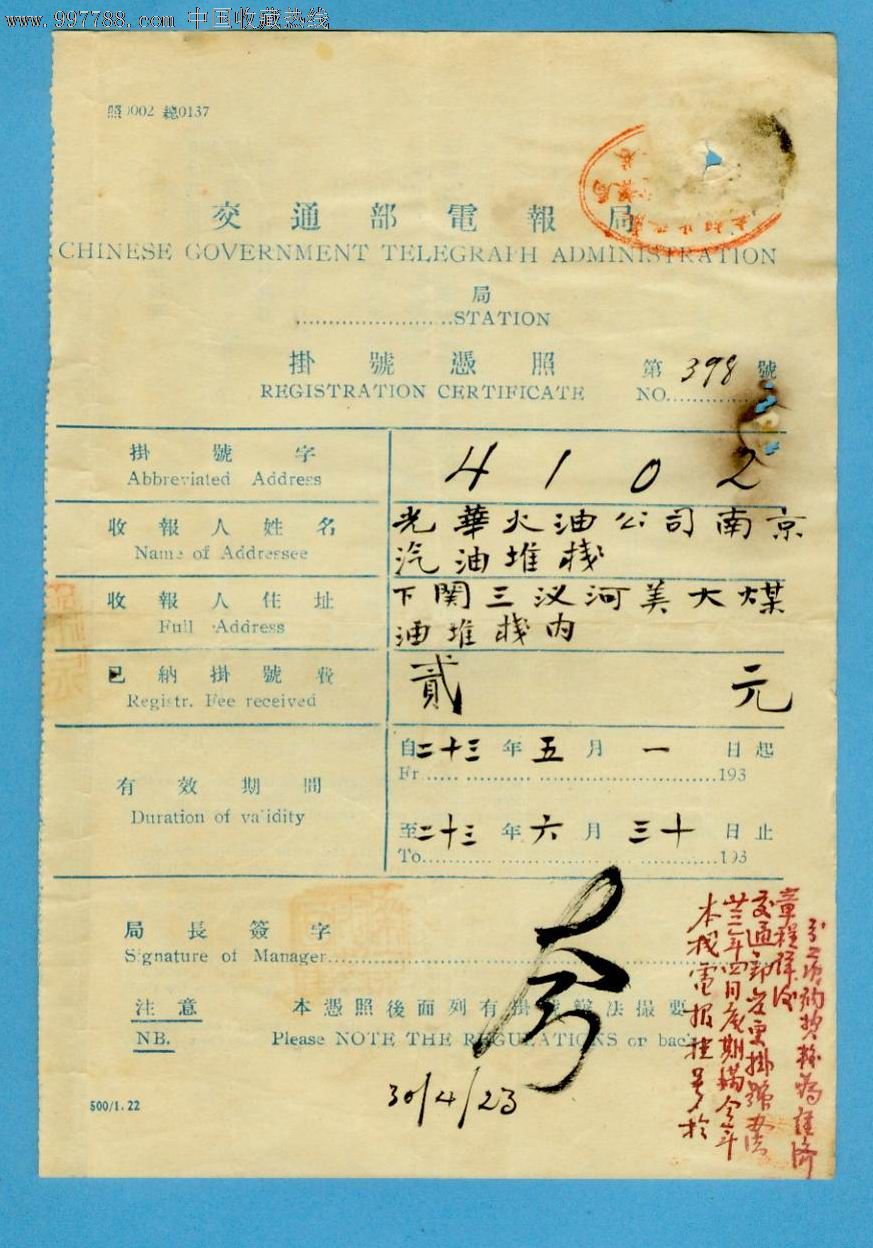 www.997788.com 中国收藏热线
照 002 總0137
交通部電報局
CHINESE GOVERNMENT TELEGRAPH ADMINISTRATION
局
STATION
掛號憑照
第 398 號
REGISTRATION CERTIFICATE
NO.
掛號字
Abbreviated Address
4 1 0 2
收報人姓名
Name of Addressee
光華火油公司南京
汽油堆棧
收報人住址
Full Address
下関三汊河美大煤
油堆棧内
已納掛號費
Registr. Fee received
貳 元
有效期間
Duration of validity
自二十三年五月一日起
Fr. 193
至二十三年六月三十日止
To 193
局長簽字
Signature of Manager
注意
NB.
本憑照後面列有掛號辦法撮要
Please NOTE THE REGULATIONS on back
30/4/23
500/1.22
本棧電报挂号於
廿三年四月底期满今年
交通部变更掛號办法
章程